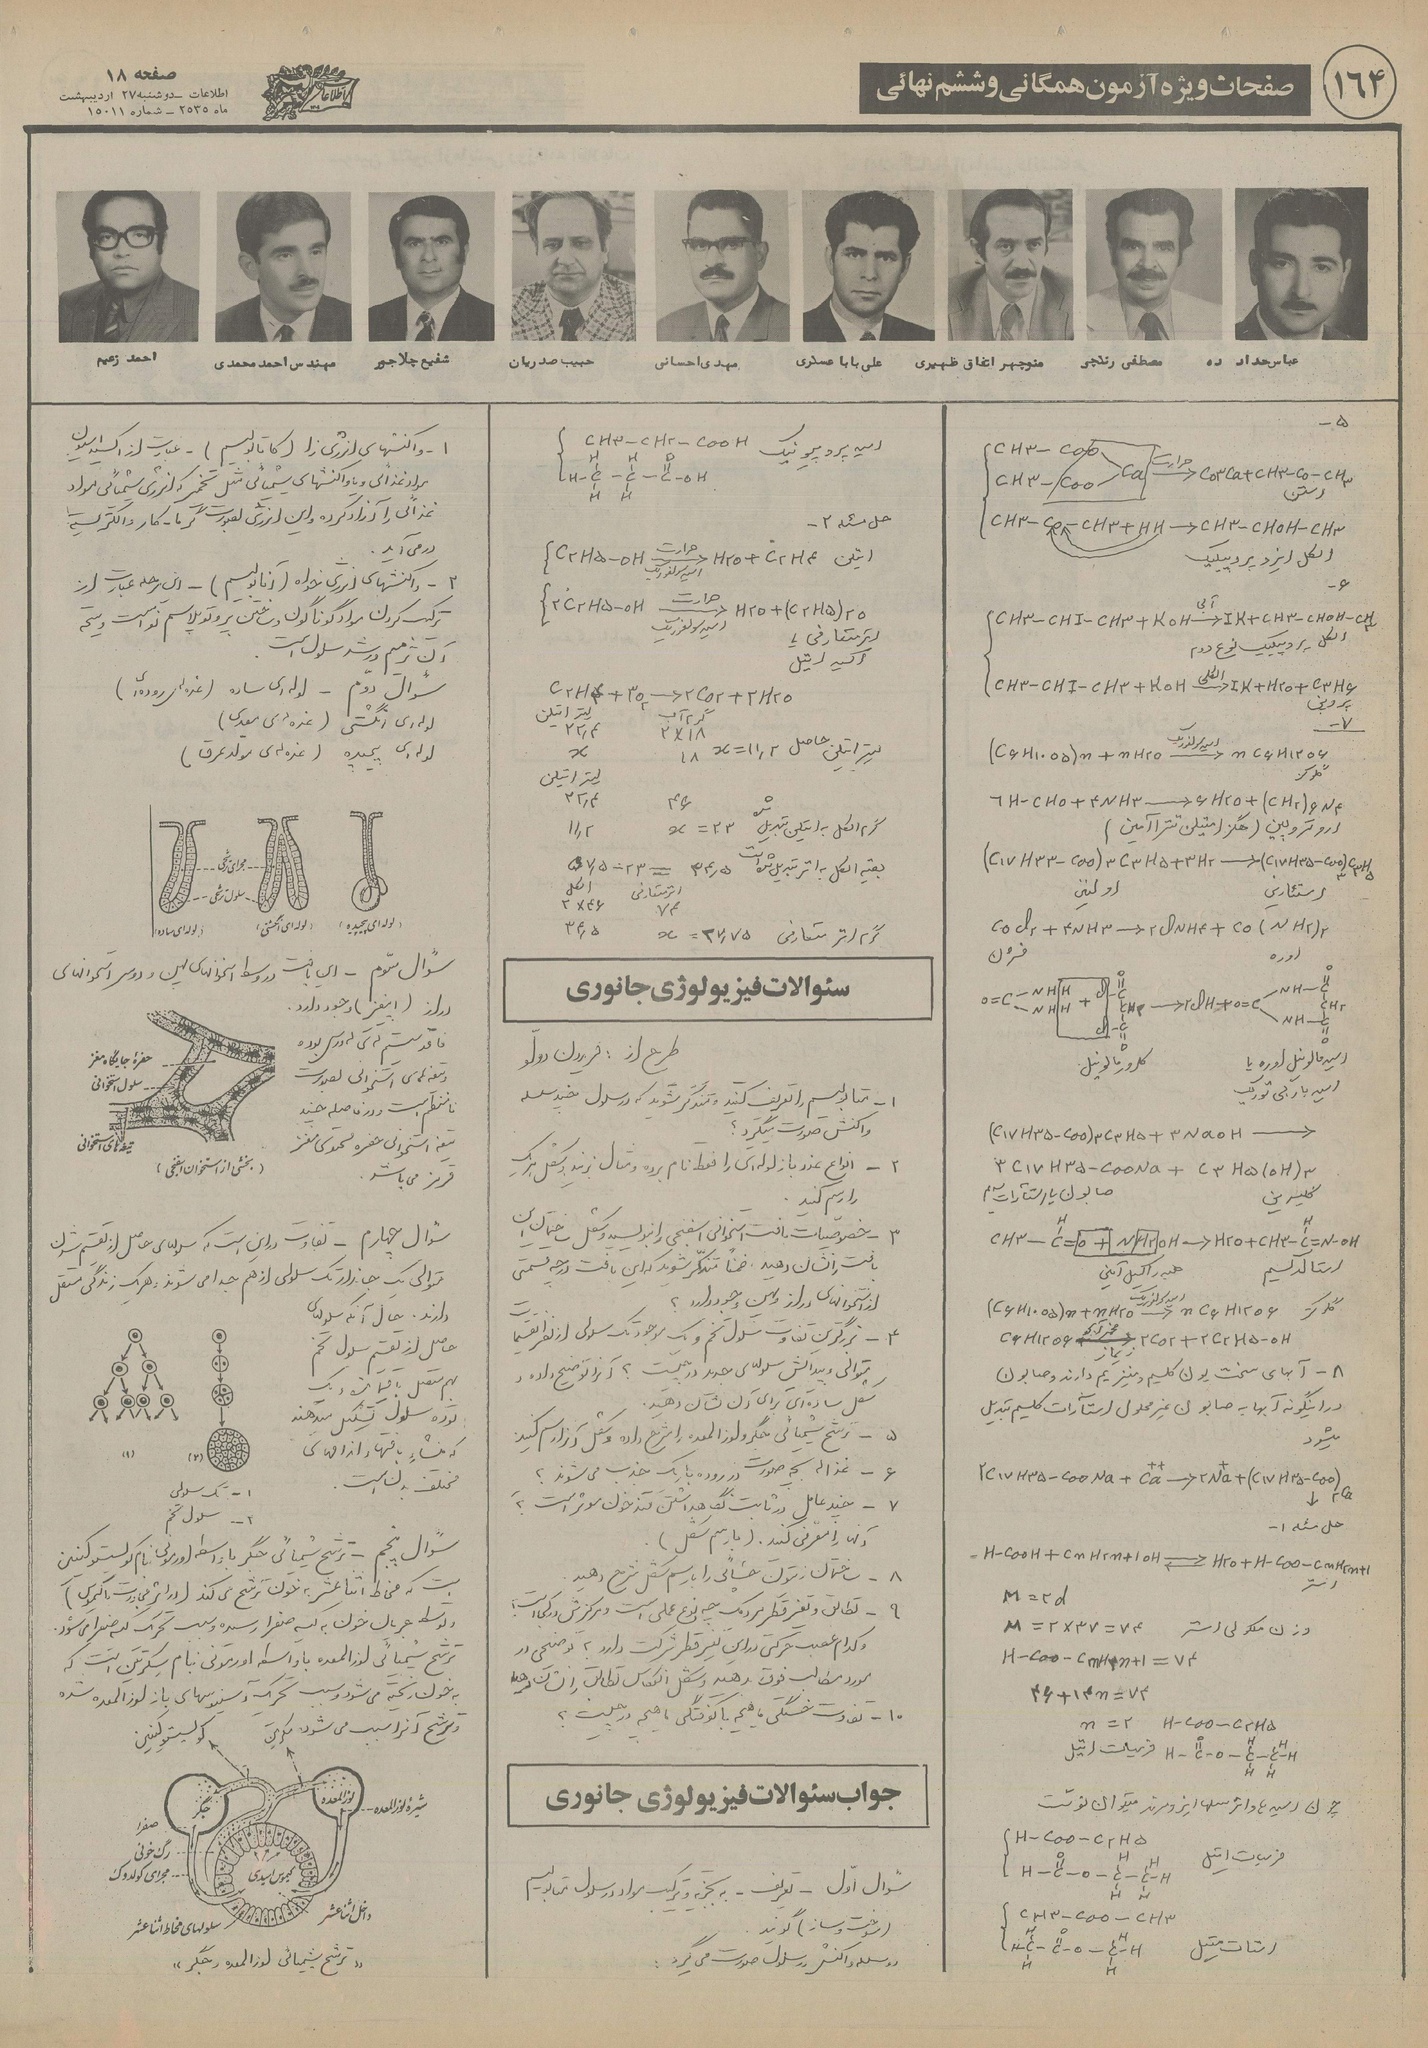 ۱۶۴
صفحات ویژه آزمون همگانی وششم نهائی
صفحه ۱۸
اطلاعات ـ دوشنبه ۲۷ اردیبهشت
ماه ۲۵۳۵ ـ شماره ۱۵۰۱۱
عباس حداد ده
مصطفی رنگچی
منوچهر اتفاق ظهیری
علی بابا عسکری
مهدی احسانی
حبیب صدریان
شفیع چلاجور
مهندس احمد محمدی
احمد زعیم
۵ـ
CH۳ـ Coo
CH۳ـ Coo Ca حرارت → Co۳Ca + CH۳ـCoـCH۳
استن
CH۳ـCoـCH۳ + HH → CH۳ـCHOHـCH۳
الکل ایزو پروپیلیک
۶ـ
CH۳ـCHIـCH۳ + KOH آبی → IK + CH۳ـCHOHـCH۳
الکل پروپیلیک نوع دوم
CH۳ـCHIـCH۳ + KOH الکلی → IK + H۲O + C۳H۶
پروپن
۷ـ
(C۶H۱۰O۵)n + nH۲O اسید سولفوریک → nC۶H۱۲O۶
گلوکز
۶HـCHO + ۴NH۳ → ۶H۲O + (CH۲)۶N۴
اوروتروپین (هگزامتیلن تترا آمین)
(C۱۷H۳۳ـCoo)۳C۳H۵ + ۳H۲ → (C۱۷H۳۵ـCoo)۳C۳H۵
اولئین استئارین
COCl۲ + ۴NH۳ → ۲ClNH۴ + CO(NH۲)۲
فسژن اوره
کلرور مالونیل
اسید مالونیل اوره یا
اسید باربی توریک
(C۱۷H۳۵ـCoo)۳C۳H۵ + ۳NaOH →
۳C۱۷H۳۵ـCooNa + C۳H۵(OH)۳
صابون یا استئارات سدیم گلیسیرین
هیدراکسیل آمین استالدکسیم
(C۶H۱۰O۵)n + nH۲O اسید سولفوریک → nC۶H۱۲O۶ گلوکز
C۶H۱۲O۶ → ۲CO۲ + ۲C۲H۵ـOH
۸ـ آبهای سخت یون کلسیم و منیزیم دارند و صابون
در اینگونه آبها به صابون غیر محلول استئارات کلسیم تبدیل
میشود
۲C۱۷H۳۵ـCooNa + Ca++ → ۲Na+ + (C۱۷H۳۵ـCoo)۲Ca ↓
حل مسئله ۱ـ
HـCooH + CnH۲n+۱OH ⇌ H۲O + HـCooـCnH۲n+۱
استر
M = ۲d
M = ۲×۳۷ = ۷۴ وزن ملکولی استر
HـCooـCnH۲n+۱ = ۷۴
۴۶ + ۱۴n = ۷۴
n = ۲ HـCooـC۲H۵
فرمیات اتیل
چون اسیدها و استرها ایزومرند میتوان نوشت
HـCooـC۲H۵
فرمیات اتیل
CH۳ـCooـCH۳
استات متیل
CH۳ـCH۲ـCOOH اسید پروپیونیک
حل مسئله ۲ـ
C۲H۵ـOH حرارت اسید سولفوریک → H۲O + C۲H۴ اتیلن
۲C۲H۵ـOH حرارت اسید سولفوریک → H۲O + (C۲H۵)۲O
اتر متعارفی یا
اکسید اتیل
C۲H۴ + ۳O۲ → ۲CO۲ + ۲H۲O
لیتر اتیلن گرم آب
۲۲٫۴ ۲×۱۸
لیتر اتیلن حاصل x = ۱۱٫۲ ۱۸ x
لیتر اتیلن
۲۲٫۴ ۴۶
گرم الکل به اتیلن تبدیل شده x = ۲۳ ۱۱٫۲
بقیه الکل به اتر تبدیل شده است ۵۷٫۵ ـ ۲۳ = ۳۴٫۵
الکل اتر متعارفی
۲×۴۶ ۷۴
گرم اتر متعارفی x = ۲۷٫۷۵ ۳۴٫۵
سئوالات فیزیولوژی جانوری
طرح از : فریدون دولو
۱ـ متابولیسم را تعریف کنید و متذکر شوید که در سلول چند سلسله
واکنش صورت میگیرد؟
۲ـ انواع غدد باز لوله‌ای را فقط نام برده و مثال بزنید و شکل هر یک
را رسم کنید.
۳ـ خصوصیات بافت استخوانی اسفنجی را بنویسید و شکل ساختمان این
بافت را نشان دهید. ضمناً متذکر شوید که این بافت در چه قسمتی
از استخوانهای دراز و پهن وجود دارد؟
۴ـ بزرگترین تفاوت سلول تخم و یک موجود تک سلولی از نظر تقسیمات
متوالی و پیدایش سلولهای جدید در چیست؟ آنرا توضیح داده و
شکل ساده‌ای برای آن نشان دهید.
۵ـ ترشح شیمیائی جگر و لوزالمعده را شرح داده و شکل آنرا رسم کنید.
۶ـ غذا به چه صورت در روده باریک جذب می‌شوند؟
۷ـ چند عامل در ثابت نگاهداشتن قند خون موثر است؟
آنها را معرفی کنید. (با رسم شکل)
۸ـ ساختمان زیتون خشائی را با رسم شکل شرح دهید.
۹ـ تطابق و تغییر قطر مردمک چه نوع عملی است و مرکزش در کجاست؟
و کدام عصب حرکتی در این تغییر قطر شرکت دارد؟ توضیحی در
مورد مطالب فوق بدهید و شکل انعکاس تطابق را نشان دهید
۱۰ـ تفاوت خستگی ماهیچه با کوفتگی ماهیچه در چیست؟
جواب سئوالات فیزیولوژی جانوری
سئوال اول ـ تعریف ـ به تجزیه و ترکیب مواد در سلول متابولیسم
(سوخت و ساز) گویند.
دو سلسله واکنش در سلول صورت می‌گیرد:
۱ـ واکنشهای انرژی زا (کاتابولیسم) ـ عبارت از اکسیداسیون
مواد غذائی و یا واکنشهای شیمیائی مثل تخمیر که انرژی شیمیائی مواد
غذائی را آزاد کرده و این انرژی بصورت گرما ـ کار و الکتریسیته
در می‌آید.
۲ـ واکنشهای انرژی خواه (آنابولیسم) ـ این مرحله عبارت از
ترکیب کردن مواد گوناگون و ساختن پروتوپلاسم نو است و نتیجه
آن ترمیم و رشد سلول است.
سئوال دوم ـ لوله‌ای ساده (غده‌های روده‌ای)
لوله‌ای انگشتی (غده‌های معدی)
لوله‌ای پیچیده (غده‌های مولد عرق)
مجرای ترشحی
سلول ترشحی
(لوله‌ای پیچیده)
(لوله‌ای انگشتی)
(لوله‌ای ساده)
سئوال سوم ـ این بافت در وسط استخوانهای پهن و دو سر استخوانهای
دراز (اپیفیز) وجود دارد.
فاقد سیستم‌های هاورس بوده
و تیغه‌های استخوانی بصورت
نامنظم است و در فاصله چند
تیغه استخوانی حفره محتوی مغز
قرمز می‌باشد.
حفره جایگاه مغز
سلول استخوانی
تیغه‌های استخوانی
(بخشی از استخوان اسفنجی)
سئوال چهارم ـ تفاوت در این است که سلولهای حاصل از تقسیم شدن
متوالی یک جاندار تک سلولی از هم جدا می شوند و هر یک زندگی مستقل
دارند. حال آنکه سلولهای
حاصل از تقسیم سلول تخم
بهم متصل باقیمانده و یک
توده سلول تشکیل میدهند
که منشاء بافتها و اندامهای
مختلف بدن است.
(۱)
(۲)
۱ـ تک سلولی
۲ـ سلول تخم
سئوال پنجم ـ ترشح شیمیائی جگر با واسطه اورمونی بنام کوله سیستوکینین
است که مخاط اثناعشر به خون ترشح می‌کند (در اثر مجاورت با کیموس)
و توسط جریان خون به کیسه صفرا رسیده و سبب تحرک کیسه صفرا می‌شود.
ترشح شیمیائی لوزالمعده با واسطه اورمونی بنام سکرتین است که
به خون ریخته می‌شود و سبب تحریک آسینوسهای باز لوزالمعده شده
و ترشح آنرا سبب می شود.
سکرتین
کوله سیستوکینین
جگر
لوزالمعده
شیرهٔ لوزالمعده
صفرا
رگ خونی
مجرای کولدوک
کیموس اسیدی
داخل اثناعشر
سلولهای مخاط اثناعشر
«ترشح شیمیائی لوزالمعده و جگر»